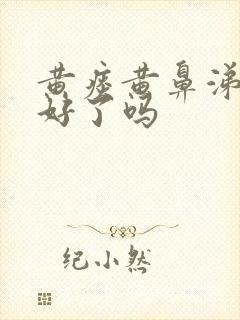 黄痰黄鼻涕
好了吗
纪小然